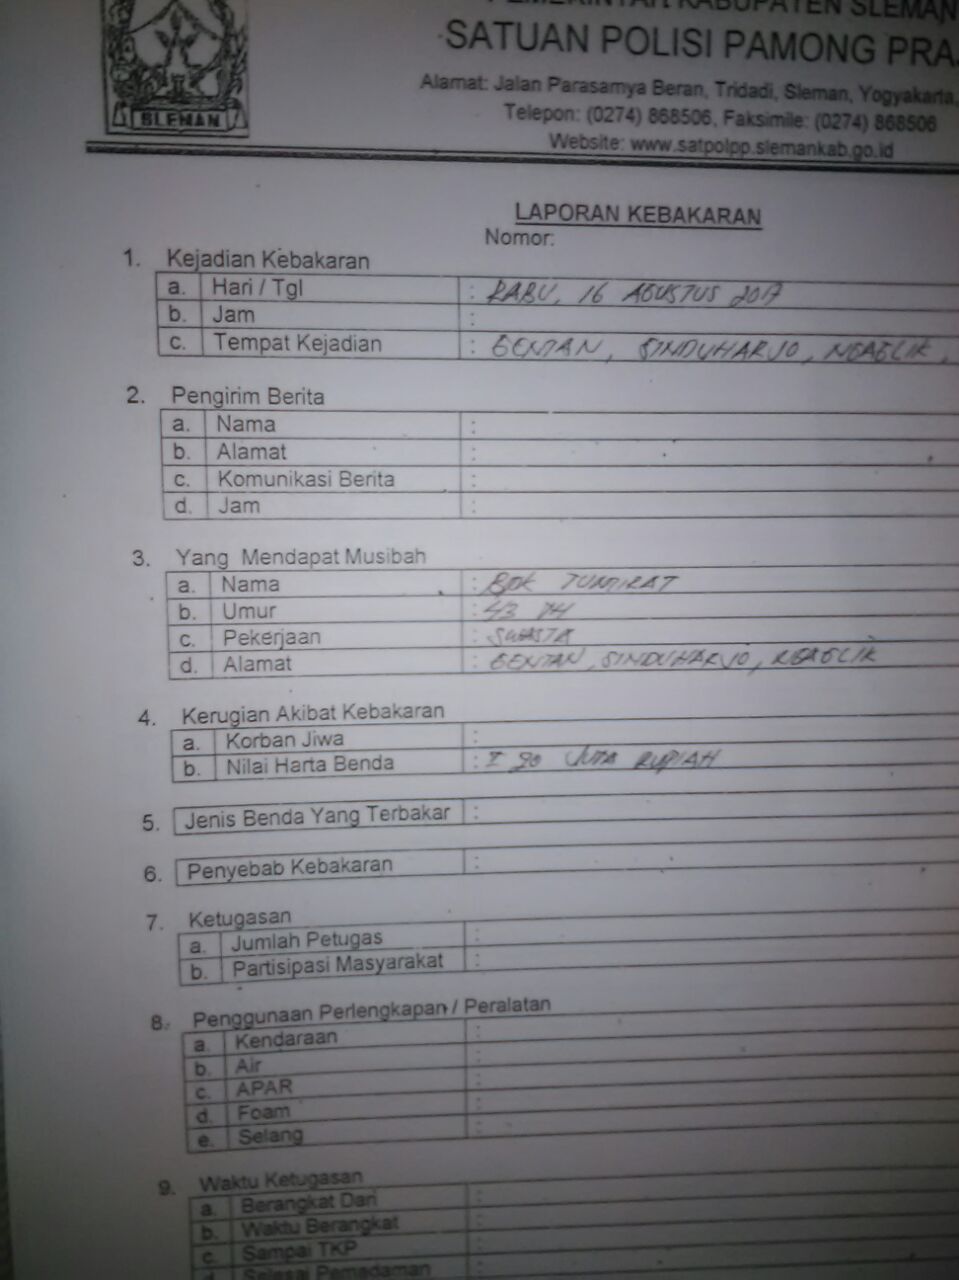 PEMERINTAH KABUPATEN SLEMAN
SATUAN POLISI PAMONG PRA
Alamat: Jalan Parasamya Beran, Tridadi, Sleman, Yogyakarta,
Telepon: (0274) 868506, Faksimile: (0274) 868506
Website: www.satpolpp.slemankab.go.id
SLEMAN
LAPORAN KEBAKARAN
Nomor:
1. Kejadian Kebakaran
a. Hari / Tgl : RABU, 16 AGUSTUS 2017
b. Jam :
c. Tempat Kejadian : GENTAN, SINDUHARJO, NGAGLIK,
2. Pengirim Berita
a. Nama :
b. Alamat :
c. Komunikasi Berita :
d. Jam :
3. Yang Mendapat Musibah
a. Nama : BPK TUMIRAT
b. Umur : 43 TH
c. Pekerjaan : SWASTA
d. Alamat : GENTAN, SINDUHARJO, NGAGLIK
4. Kerugian Akibat Kebakaran
a. Korban Jiwa :
b. Nilai Harta Benda : JUTA RUPIAH
5. Jenis Benda Yang Terbakar :
6. Penyebab Kebakaran :
7. Ketugasan
a. Jumlah Petugas :
b. Partisipasi Masyarakat :
8. Penggunaan Perlengkapan / Peralatan
a. Kendaraan :
b. Air :
c. APAR :
d. Foam :
e. Selang :
9. Waktu Ketugasan
a. Berangkat Dari :
b. Waktu Berangkat :
c. Sampai TKP :
d. Selesai Pemadaman :